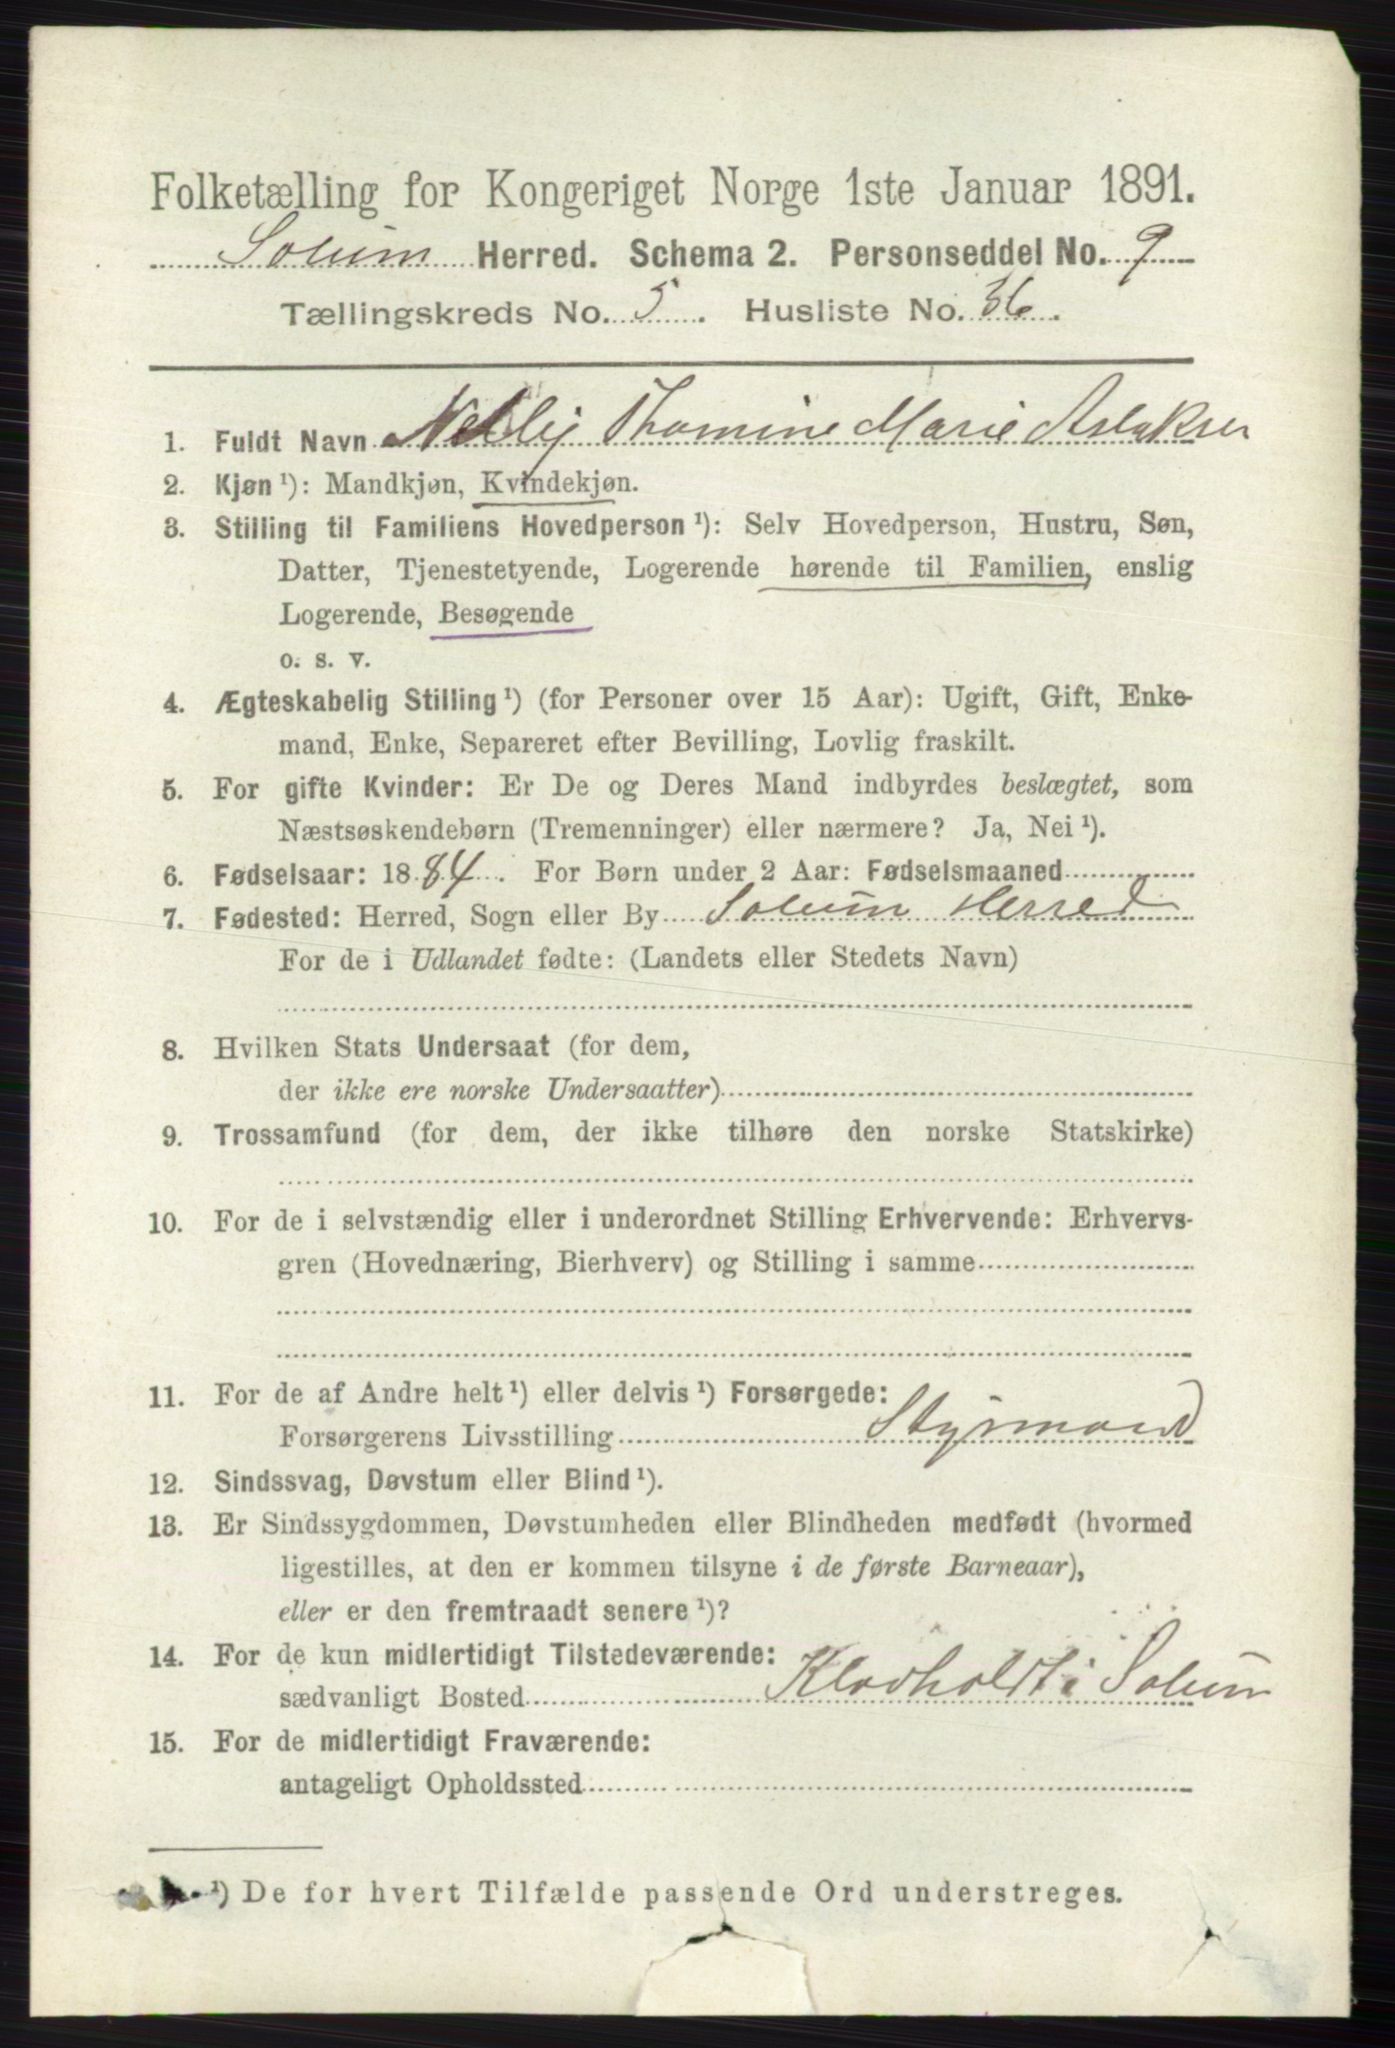 Folketælling for Kongeriget Norge 1ste Januar 1891.
Solum Herred. Schema 2. Personseddel No. 9
Tællingskreds No. 5. Husliste No. 36.
1. Fuldt Navn Nellij Thomine Marie Aslaksen
2. Kjøn ¹): Mandkjøn, Kvindekjøn.
3. Stilling til Familiens Hovedperson ¹): Selv Hovedperson, Hustru, Søn,
Datter, Tjenestetyende, Logerende hørende til Familien, enslig
Logerende, Besøgende
o. s. v.
4. Ægteskabelig Stilling ¹) (for Personer over 15 Aar): Ugift, Gift, Enke-
mand, Enke, Separeret efter Bevilling, Lovlig fraskilt.
5. For gifte Kvinder: Er De og Deres Mand indbyrdes beslægtet, som
Næstsøskendebørn (Tremenninger) eller nærmere? Ja, Nei ¹).
6. Fødselsaar: 1884. For Børn under 2 Aar: Fødselsmaaned
7. Fødested: Herred, Sogn eller By Solum Herred
For de i Udlandet fødte: (Landets eller Stedets Navn)
8. Hvilken Stats Undersaat (for dem,
der ikke ere norske Undersaatter)
9. Trossamfund (for dem, der ikke tilhøre den norske Statskirke)
10. For de i selvstændig eller i underordnet Stilling Erhvervende: Erhvervs-
gren (Hovednæring, Bierhverv) og Stilling i samme
11. For de af Andre helt ¹) eller delvis ¹) Forsørgede:
Forsørgerens Livsstilling Styrmand
12. Sindssvag, Døvstum eller Blind ¹).
13. Er Sindssygdommen, Døvstumheden eller Blindheden medfødt (hvormed
ligestilles, at den er kommen tilsyne i de første Barneaar),
eller er den fremtraadt senere ¹)?
14. For de kun midlertidigt Tilstedeværende:
sædvanligt Bosted Klovholdt i Solum
15. For de midlertidigt Fraværende:
antageligt Opholdssted
¹) De for hvert Tilfælde passende Ord understreges.